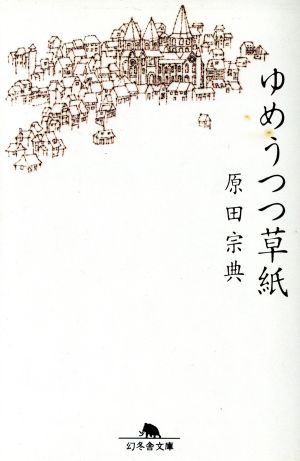 ゆめうつつ草紙
原田宗典
幻冬舎文庫